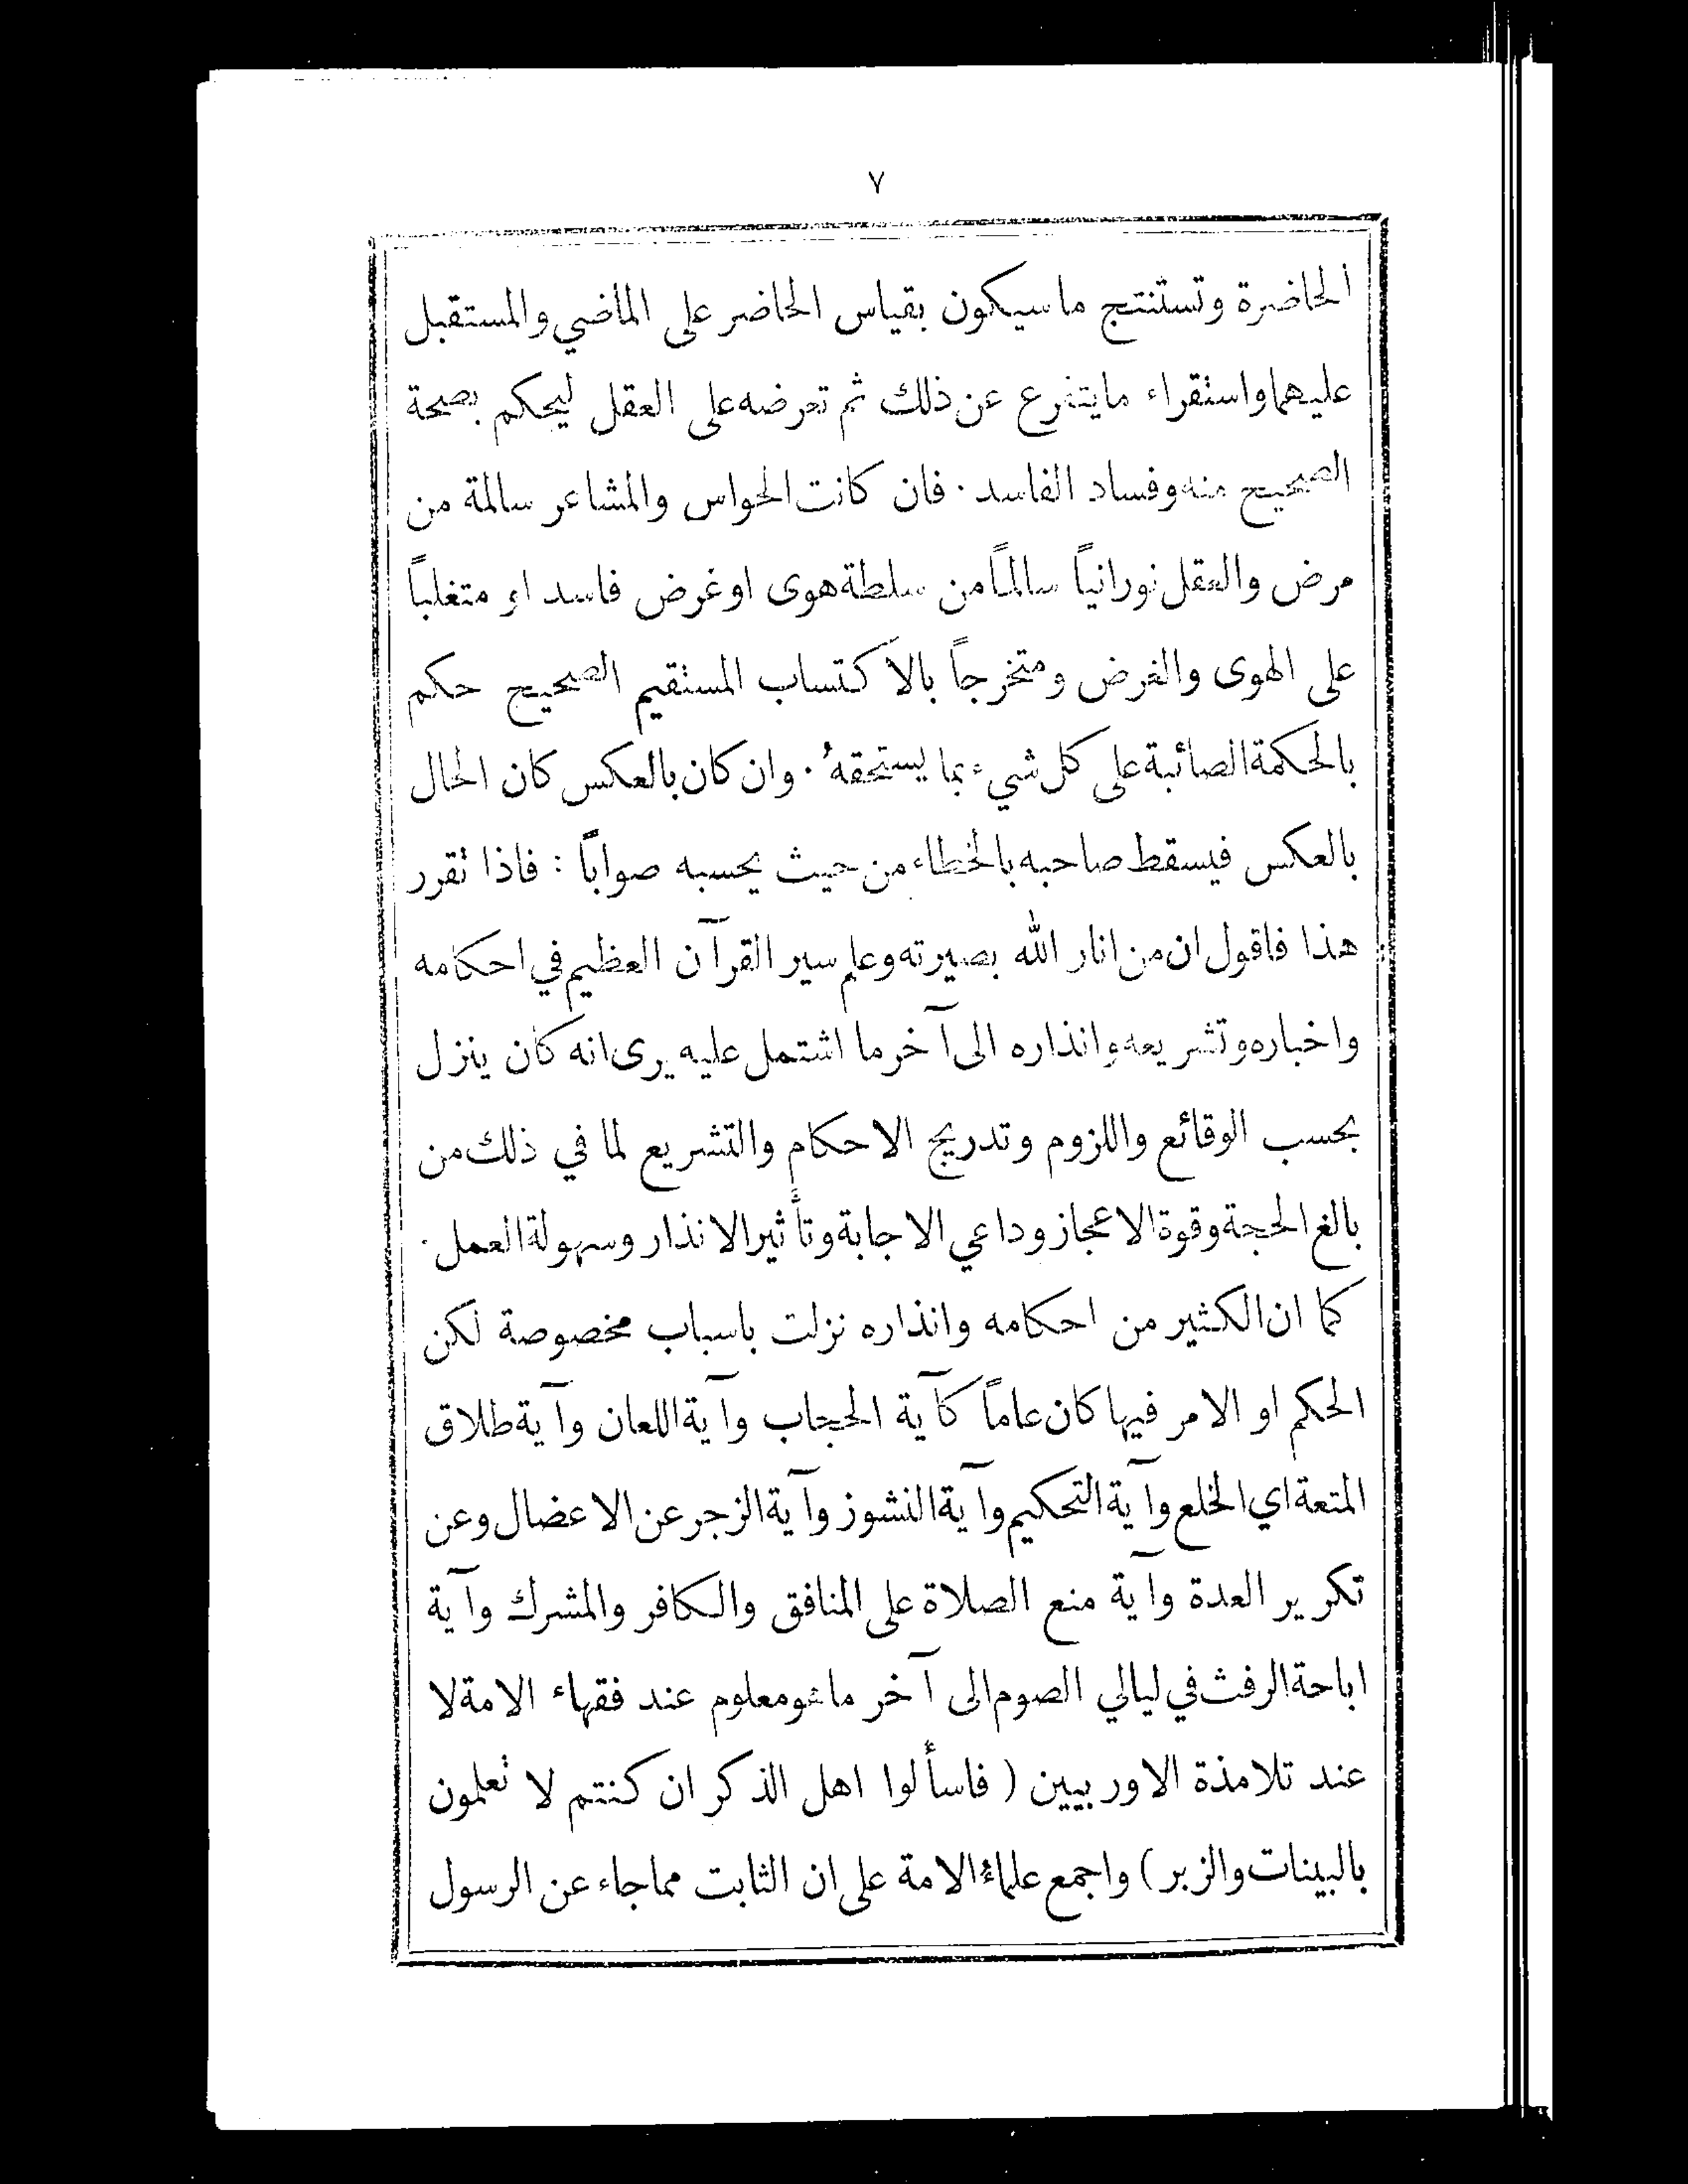 ٧
الحاضرة وتستنتج ما سيكون بقياس الحاضر على الماضي والمستقبل
عليهما واستقراء ما يتفرع عن ذلك ثم تعرضه على العقل ليحكم بصحة
الصحيح منه وفساد الفاسد . فان كانت الحواس والمشاعر سالمة من
مرض والعقل نورانياً سالماً من سلطة هوى او غرض فاسد او متغلباً
على الهوى والغرض ومتخرجاً بالاكتساب المستقيم الصحيح حكم
بالحكمة الصائبة على كل شيء بما يستحقهُ . وان كان بالعكس كان الحال
بالعكس فيسقط صاحبه بالخطاء من حيث يحسبه صواباً : فاذا تقرر
هذا فاقول ان من انار الله بصيرته وعلم سير القرآن العظيم في احكامه
واخباره وتشريعه وانذاره الى آخر ما اشتمل عليه يرى انه كان ينزل
بحسب الوقائع واللزوم وتدريج الاحكام والتشريع لما في ذلك من
بالغ الحجة وقوة الاعجاز وداعي الاجابة وتأثير الانذار وسهولة العمل .
كما ان الكثير من احكامه وانذاره نزلت باسباب مخصوصة لكن
الحكم او الامر فيها كان عاماً كآية الحجاب وآية اللعان وآية طلاق
المتعة اي الخلع وآية التحكيم وآية النشوز وآية الزجر عن الاعضال وعن
تكرير العدة وآية منع الصلاة على المنافق والكافر والمشرك وآية
اباحة الرفث في ليالي الصوم الى آخر ما هو معلوم عند فقهاء الامة لا
عند تلامذة الاوربيين ( فاسألوا اهل الذكر ان كنتم لا تعلمون
بالبينات والزبر ) واجمع علماءُ الامة على ان الثابت مما جاء عن الرسول